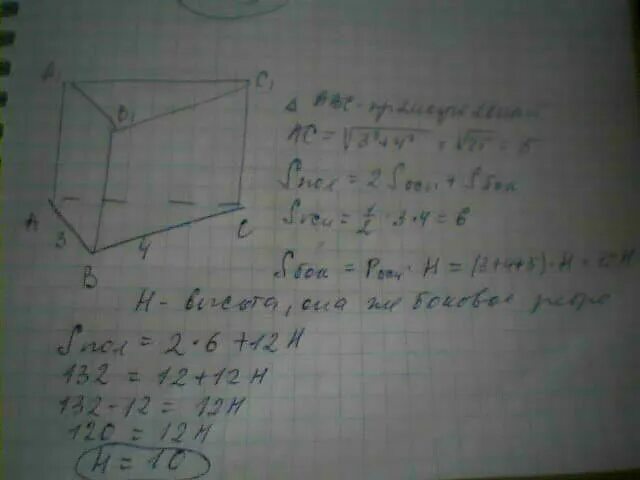 A₁ C₁
B₁
A C
3 4
B
Δ ABC - прямоугольный
AC = √3²+4² = √25 = 5
Sпол = 2 Sосн + Sбок
Sосн = 1/2 · 3 · 4 = 6
Sбок = Pосн · H = (3+4+5) · H = 12H
H - высота, она же боковое ребро
Sпол = 2 · 6 + 12H
132 = 12 + 12H
132 - 12 = 12H
120 = 12H
H = 10